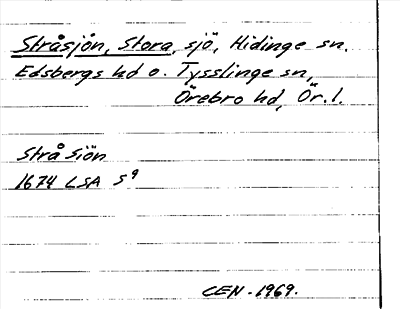 Stråsjön, Stora, sjö, Hidinge sn.
Edsbergs hd o. Tysslinge sn,
Örebro hd, Ör. l.
Strå Siön
1674 LSA S⁹
CEN - 1969.